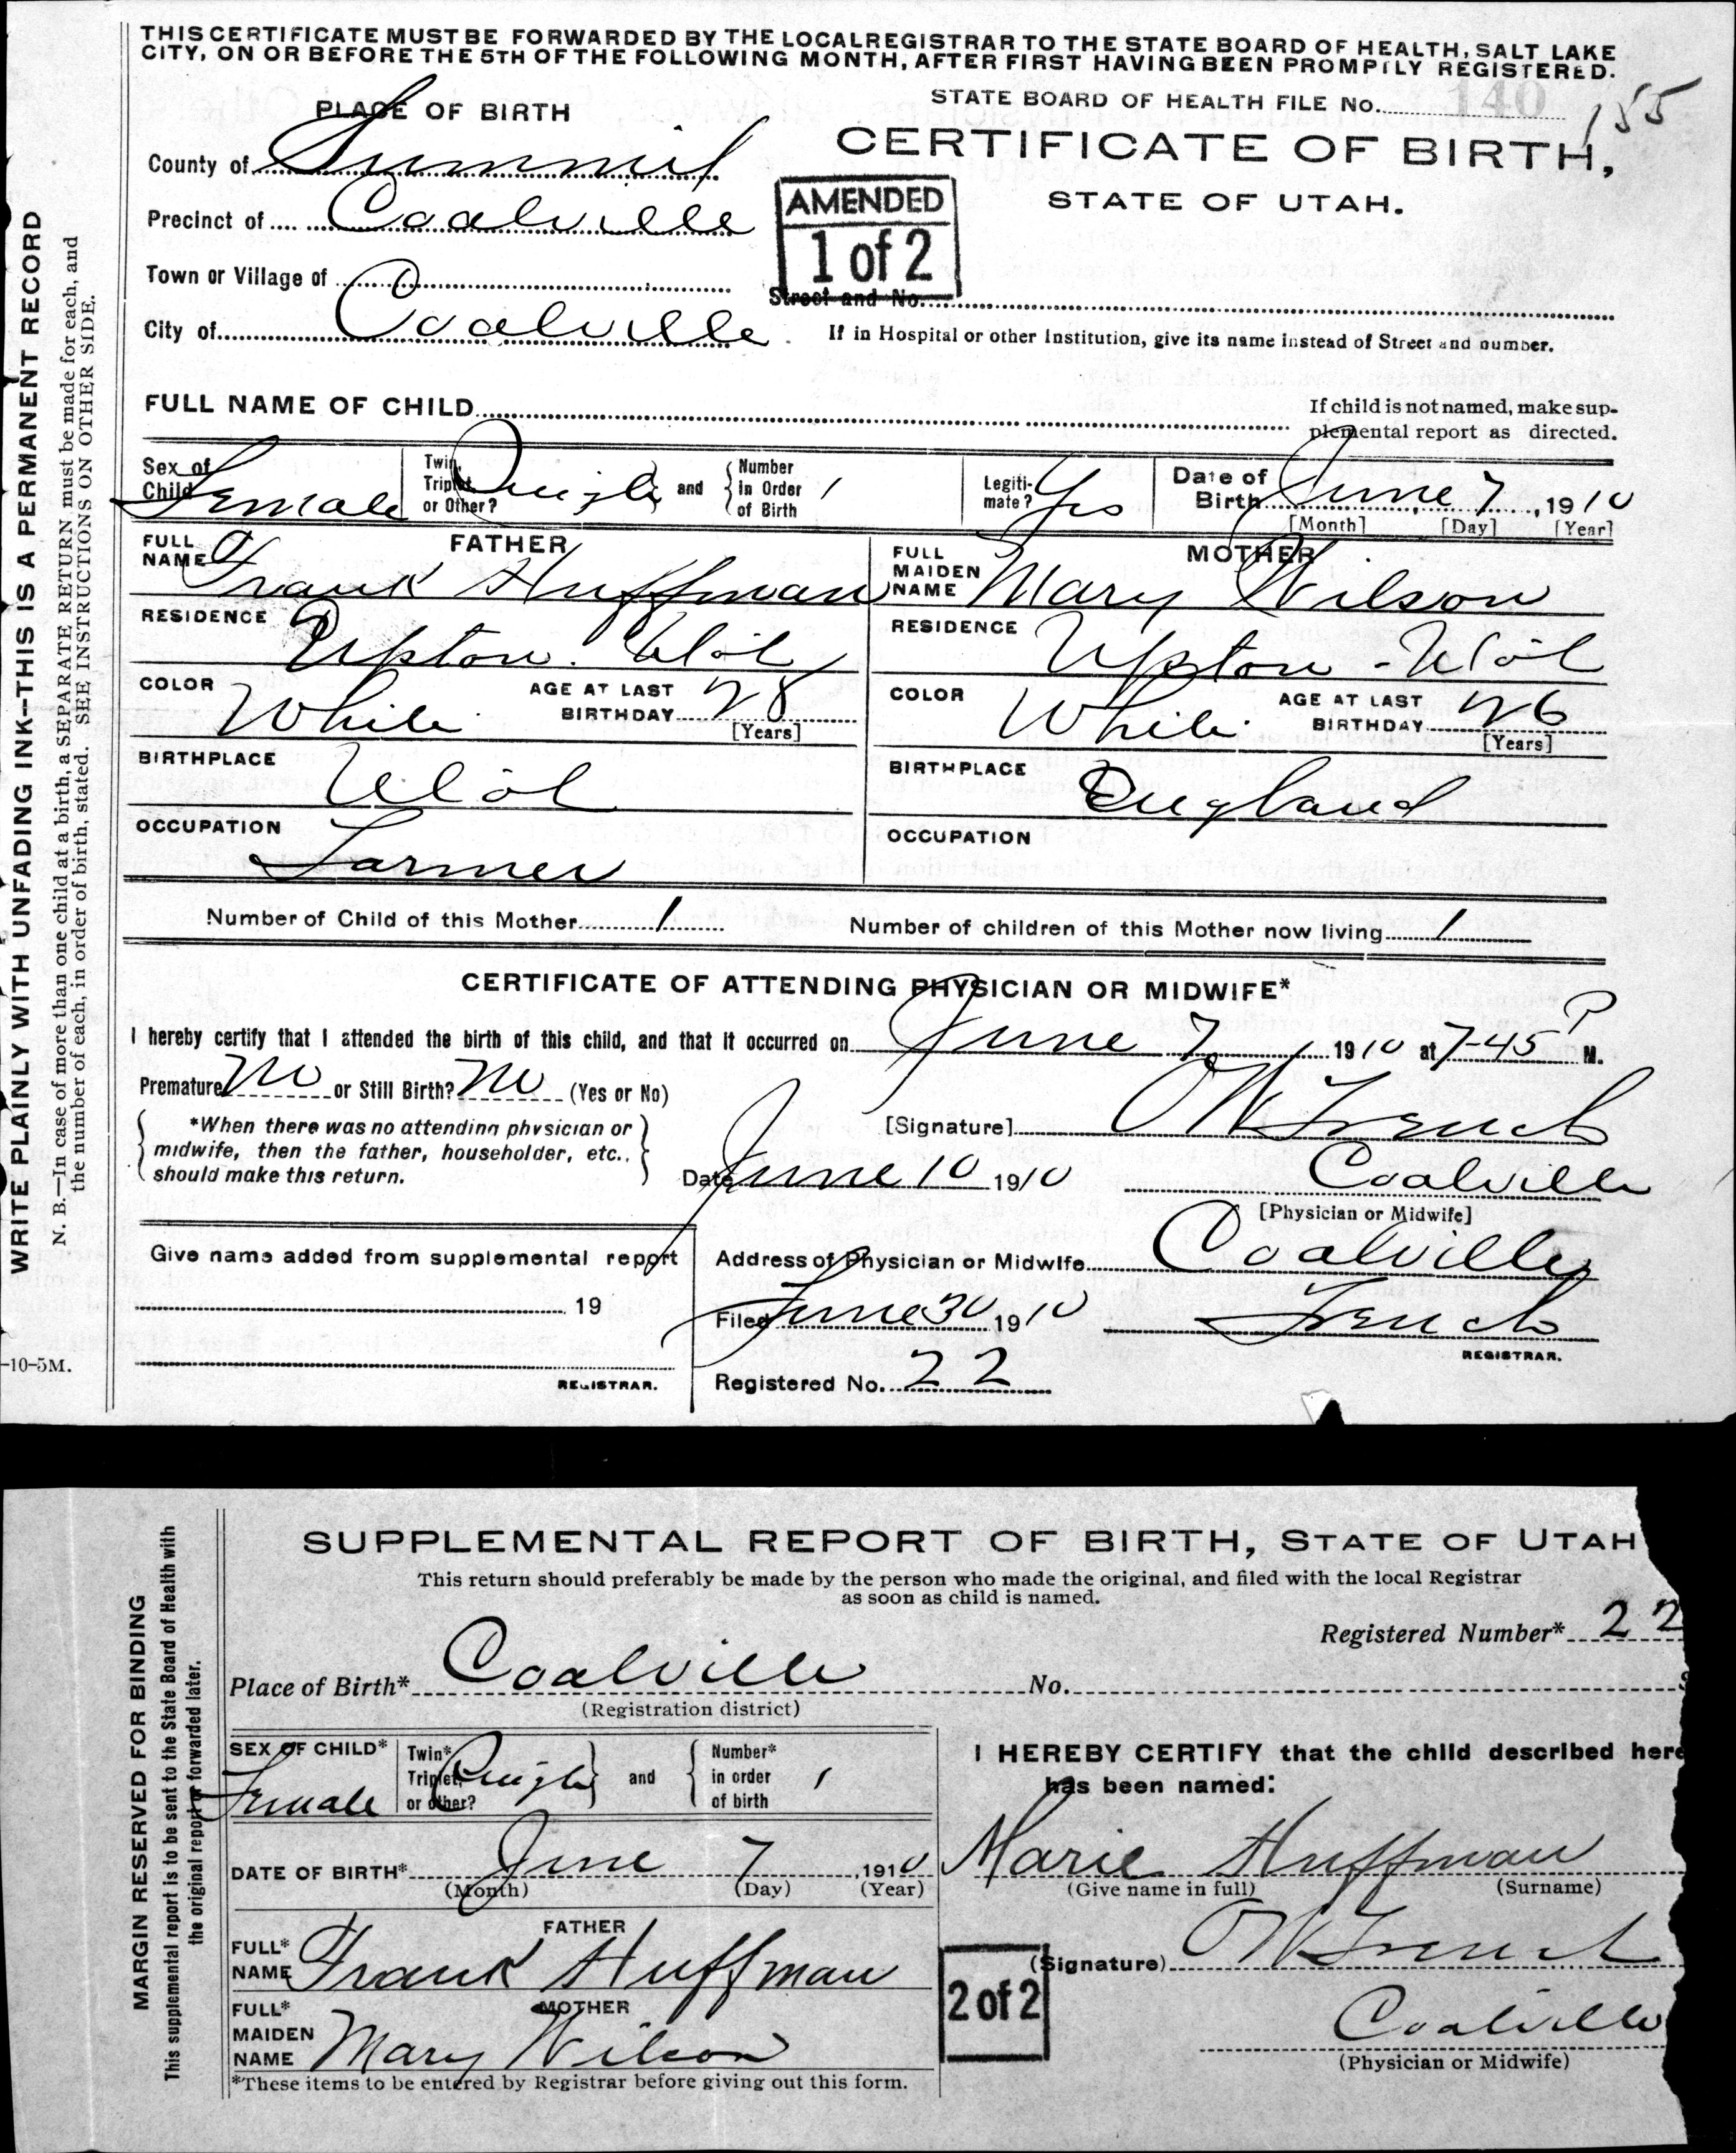 THIS CERTIFICATE MUST BE FORWARDED BY THE LOCAL REGISTRAR TO THE STATE BOARD OF HEALTH, SALT LAKE
CITY, ON OR BEFORE THE 5TH OF THE FOLLOWING MONTH, AFTER FIRST HAVING BEEN PROMPTLY REGISTERED.
STATE BOARD OF HEALTH FILE No. 140 155
PLACE OF BIRTH
CERTIFICATE OF BIRTH,
STATE OF UTAH.
County of Summit
Precinct of Coalville
AMENDED
1 of 2
Town or Village of
Street and No.
City of Coalville
If in Hospital or other Institution, give its name instead of Street and number.
FULL NAME OF CHILD
If child is not named, make sup-
plemental report as directed.
Sex of Child Female
Twin, Triplet or Other? Single and Number in Order of Birth 1
Legiti-mate? Yes
Date of Birth June 7, 1910
[Month] [Day] [Year]
FATHER
FULL NAME Frank Huffman
RESIDENCE Upton. Utah
COLOR White AGE AT LAST BIRTHDAY 28
[Years]
BIRTHPLACE Utah
OCCUPATION Farmer
MOTHER
FULL MAIDEN NAME Mary Wilson
RESIDENCE Upton - Utah
COLOR White AGE AT LAST BIRTHDAY 26
[Years]
BIRTHPLACE England
OCCUPATION
Number of Child of this Mother 1 Number of children of this Mother now living 1
CERTIFICATE OF ATTENDING PHYSICIAN OR MIDWIFE*
I hereby certify that I attended the birth of this child, and that it occurred on June 7, 1910 at 7-45 P M.
Premature No or Still Birth? No (Yes or No)
*When there was no attending physician or
midwife, then the father, householder, etc.,
should make this return.
[Signature] OW French
Date June 10 1910 Coalville
[Physician or Midwife]
Give name added from supplemental report
19
REGISTRAR.
Address of Physician or Midwife Coalville
Filed June 30 1910 French
REGISTRAR.
Registered No. 22
WRITE PLAINLY WITH UNFADING INK—THIS IS A PERMANENT RECORD
N. B.—In case of more than one child at a birth, a SEPARATE RETURN must be made for each, and
the number of each, in order of birth, stated. SEE INSTRUCTIONS ON OTHER SIDE.
-10-5M.
SUPPLEMENTAL REPORT OF BIRTH, STATE OF UTAH
This return should preferably be made by the person who made the original, and filed with the local Registrar
as soon as child is named.
Registered Number* 22
Place of Birth* Coalville No.
(Registration district)
SEX OF CHILD* Female
Twin* Triplet, or other? Single and Number* in order of birth 1
DATE OF BIRTH* June 7, 1910
(Month) (Day) (Year)
FATHER
FULL* NAME Frank Huffman
MOTHER
FULL* MAIDEN NAME Mary Wilson
*These items to be entered by Registrar before giving out this form.
I HEREBY CERTIFY that the child described here
has been named:
Marie Huffman
(Give name in full) (Surname)
(Signature) OW French
2 of 2
Coalville
(Physician or Midwife)
MARGIN RESERVED FOR BINDING
This supplemental report is to be sent to the State Board of Health with
the original report or forwarded later.